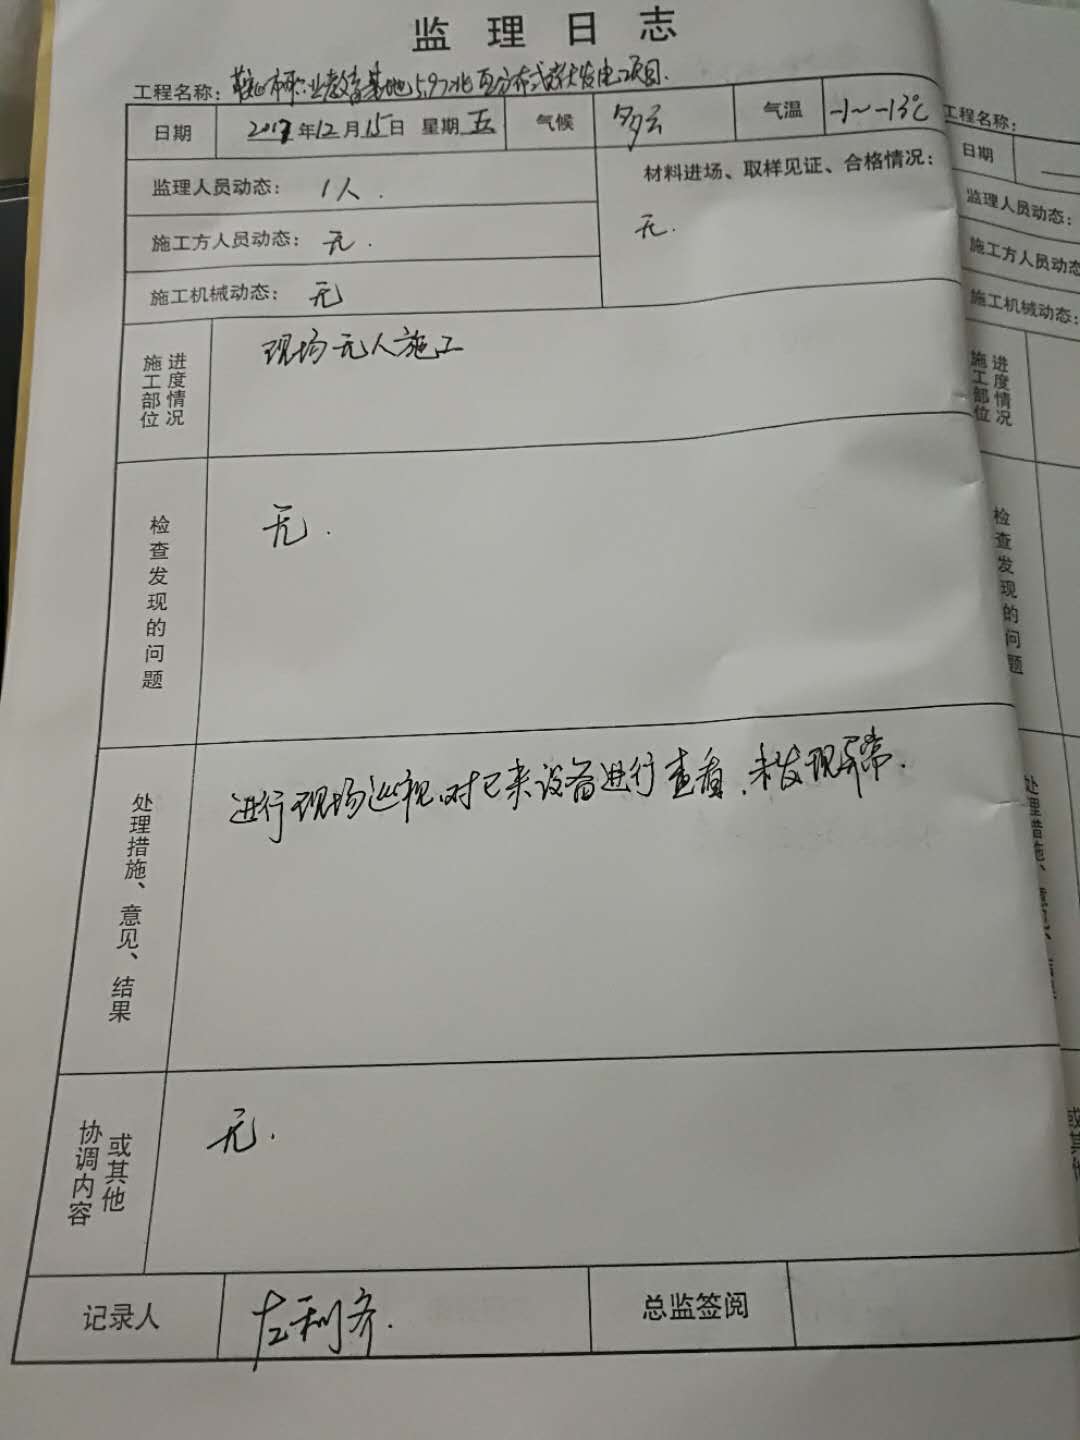 监理日志
工程名称：鞍山市职业教育基地5.97兆瓦分布式光伏发电项目.
日期 2017年12月15日 星期五 气候 多云 气温 -1～-13℃
监理人员动态： 1人.
材料进场、取样见证、合格情况：
无.
施工方人员动态： 无.
施工机械动态： 无
施工部位
进度情况
现场无人施工
检查发现的问题
无.
处理措施、意见、结果
进行现场巡视,对已来设备进行查看,未发现异常.
协调内容
或其他
无.
记录人 左利齐. 总监签阅
工程名称：
日期
监理人员动态：
施工方人员动态
施工机械动态：
施工部位
进度情况
检查发现的问题